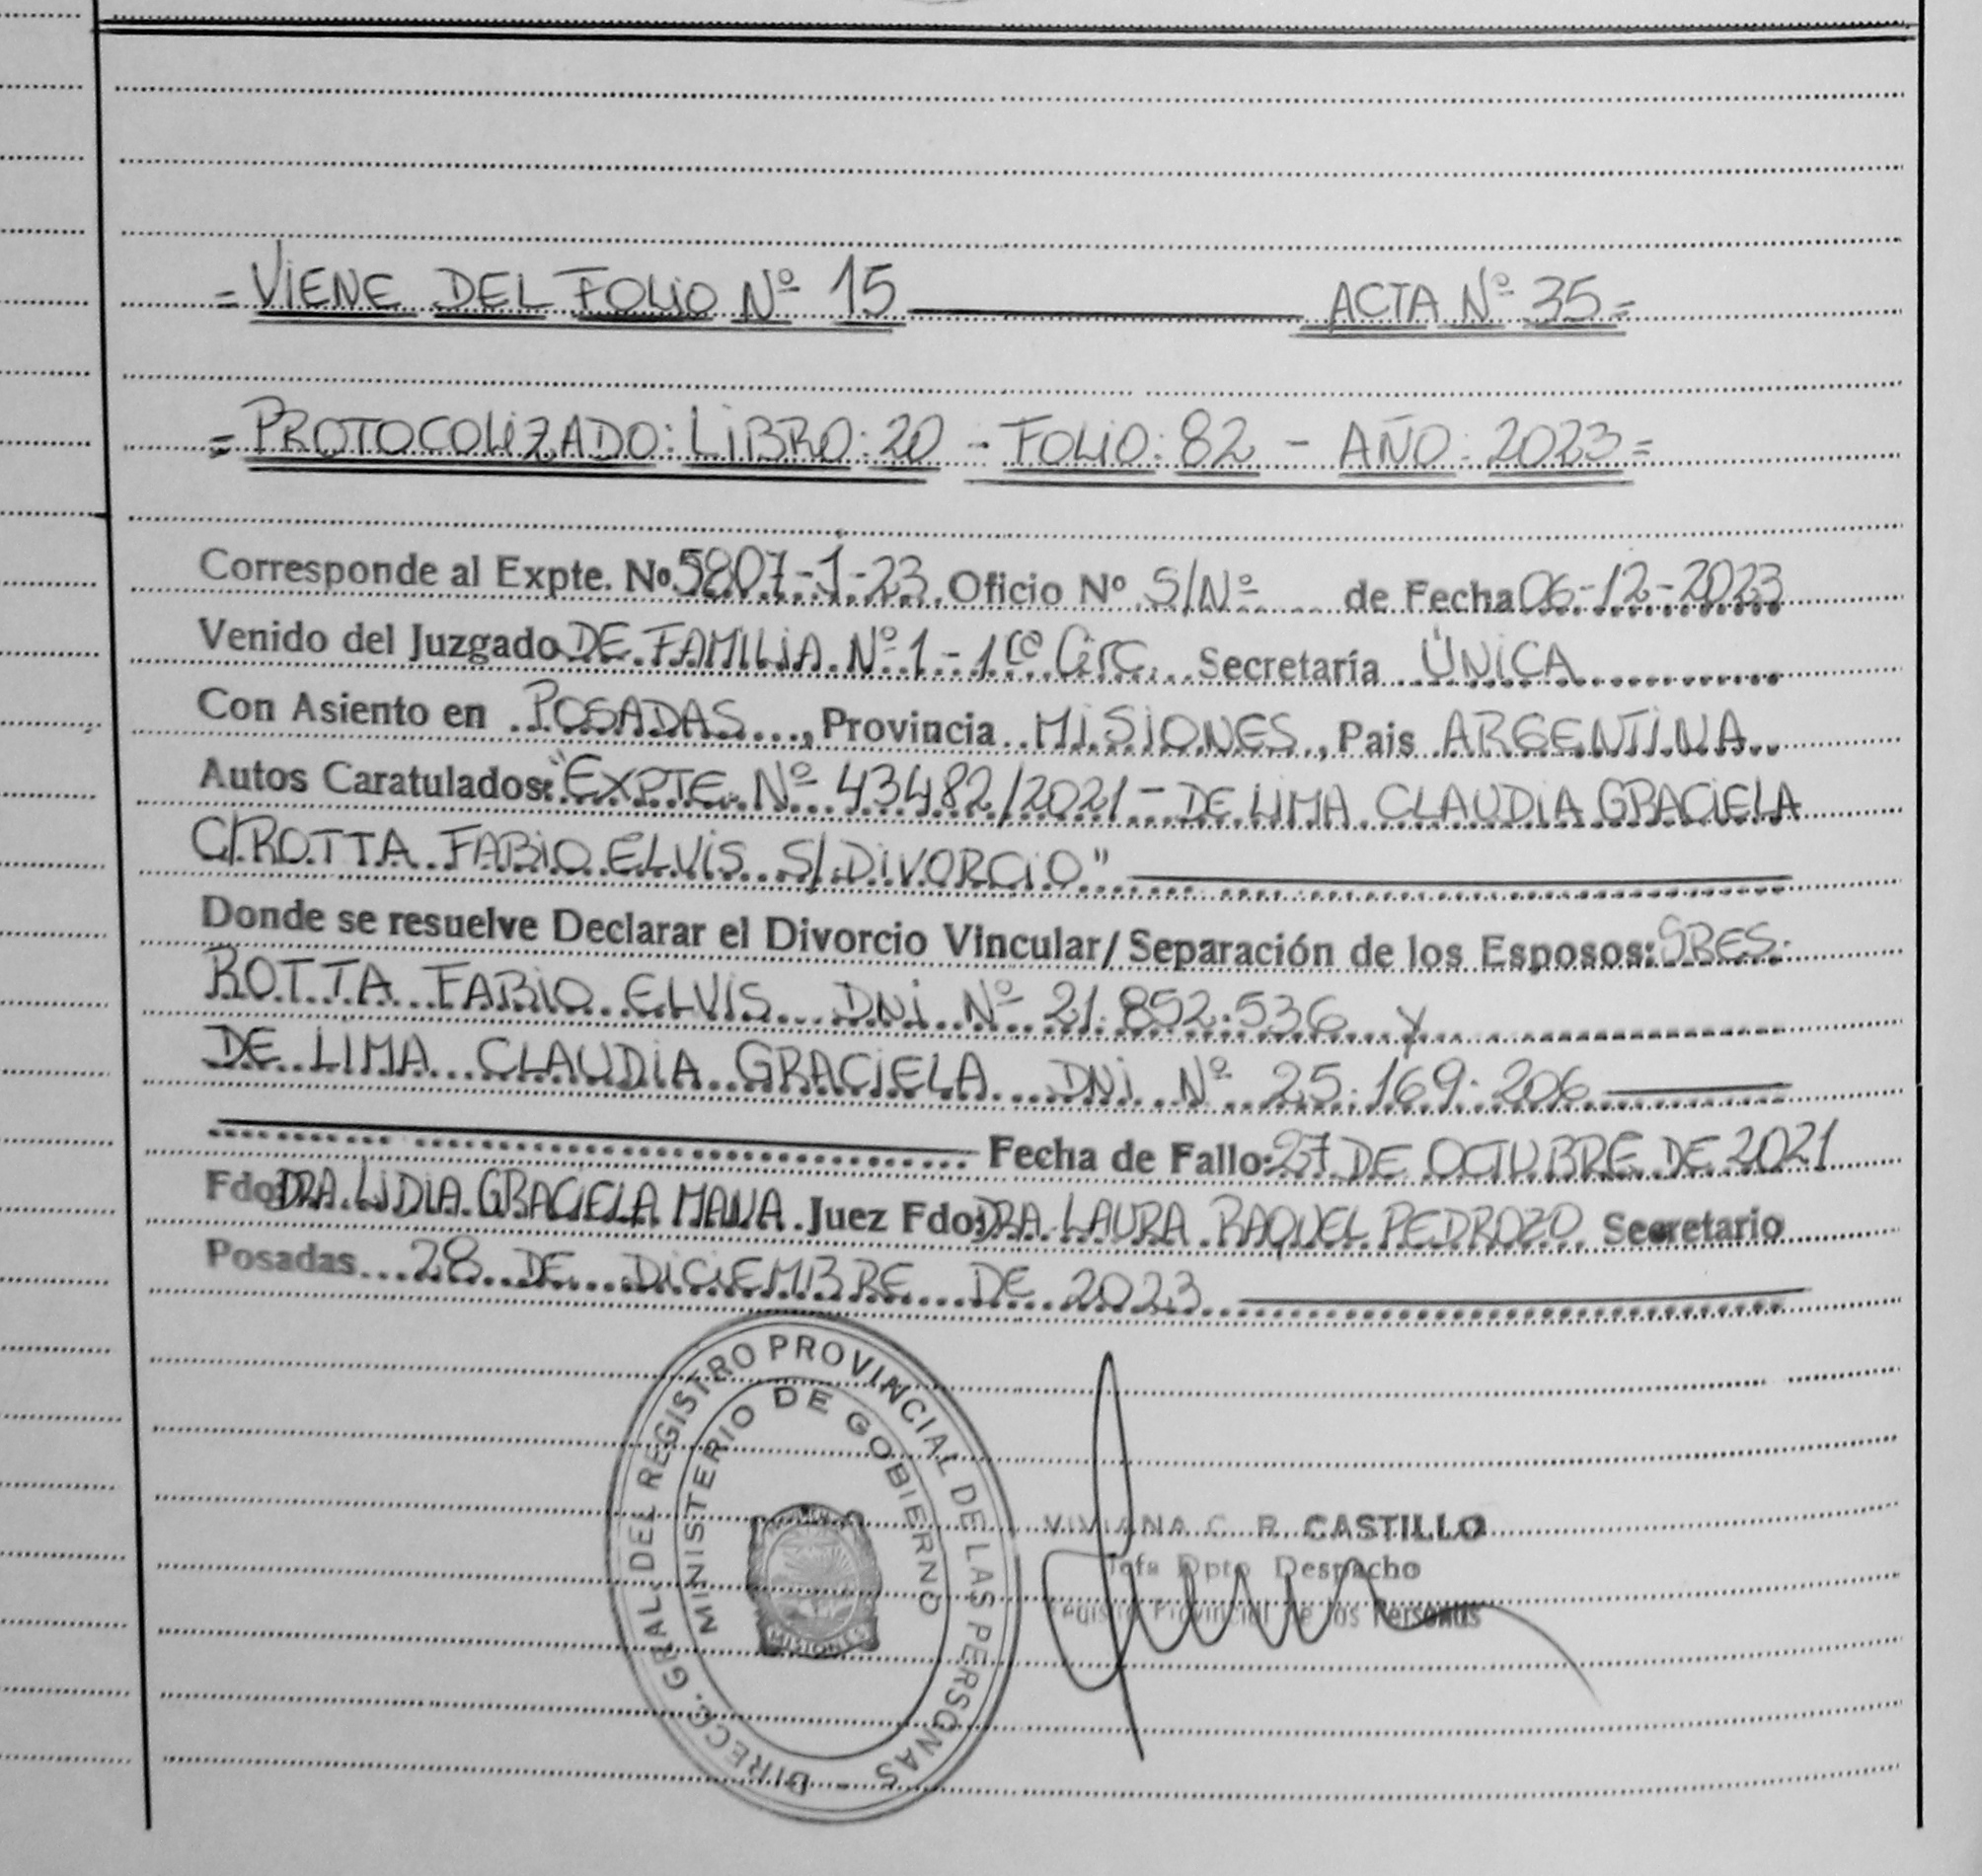 = VIENE DEL FOLIO Nº 15 ACTA Nº 35 =
= PROTOCOLIZADO: LIBRO: 20 - FOLIO: 82 - AÑO: 2023 =
Corresponde al Expte. No. 5807-1-23. Oficio Nº S/Nº de Fecha 06-12-2023
Venido del Juzgado DE FAMILIA Nº 1 - 1ra Circ. Secretaría ÚNICA
Con Asiento en POSADAS, Provincia MISIONES, Pais ARGENTINA
Autos Caratulados: "EXPTE. Nº 43482/2021 - DE LIMA CLAUDIA GRACIELA
C/ROTTA FABIO ELVIS S/DIVORCIO"
Donde se resuelve Declarar el Divorcio Vincular/Separación de los Esposos: SRES.
ROTTA FABIO ELVIS DNI Nº 21.852.536 y
DE LIMA CLAUDIA GRACIELA DNI Nº 25.169.206
Fecha de Fallo: 27 DE OCTUBRE DE 2021
Fdo: DRA. LIDIA GRACIELA MANA. Juez Fdo: DRA. LAURA RAQUEL PEDROZO Secretario
Posadas 28 DE DICIEMBRE DE 2023
DIRECC. GRAL. DEL REGISTRO PROVINCIAL DE LAS PERSONAS
MINISTERIO DE GOBIERNO
MISIONES
VIVIANA C. R. CASTILLO
Jefa Dpto Despacho
Provincial de las Personas